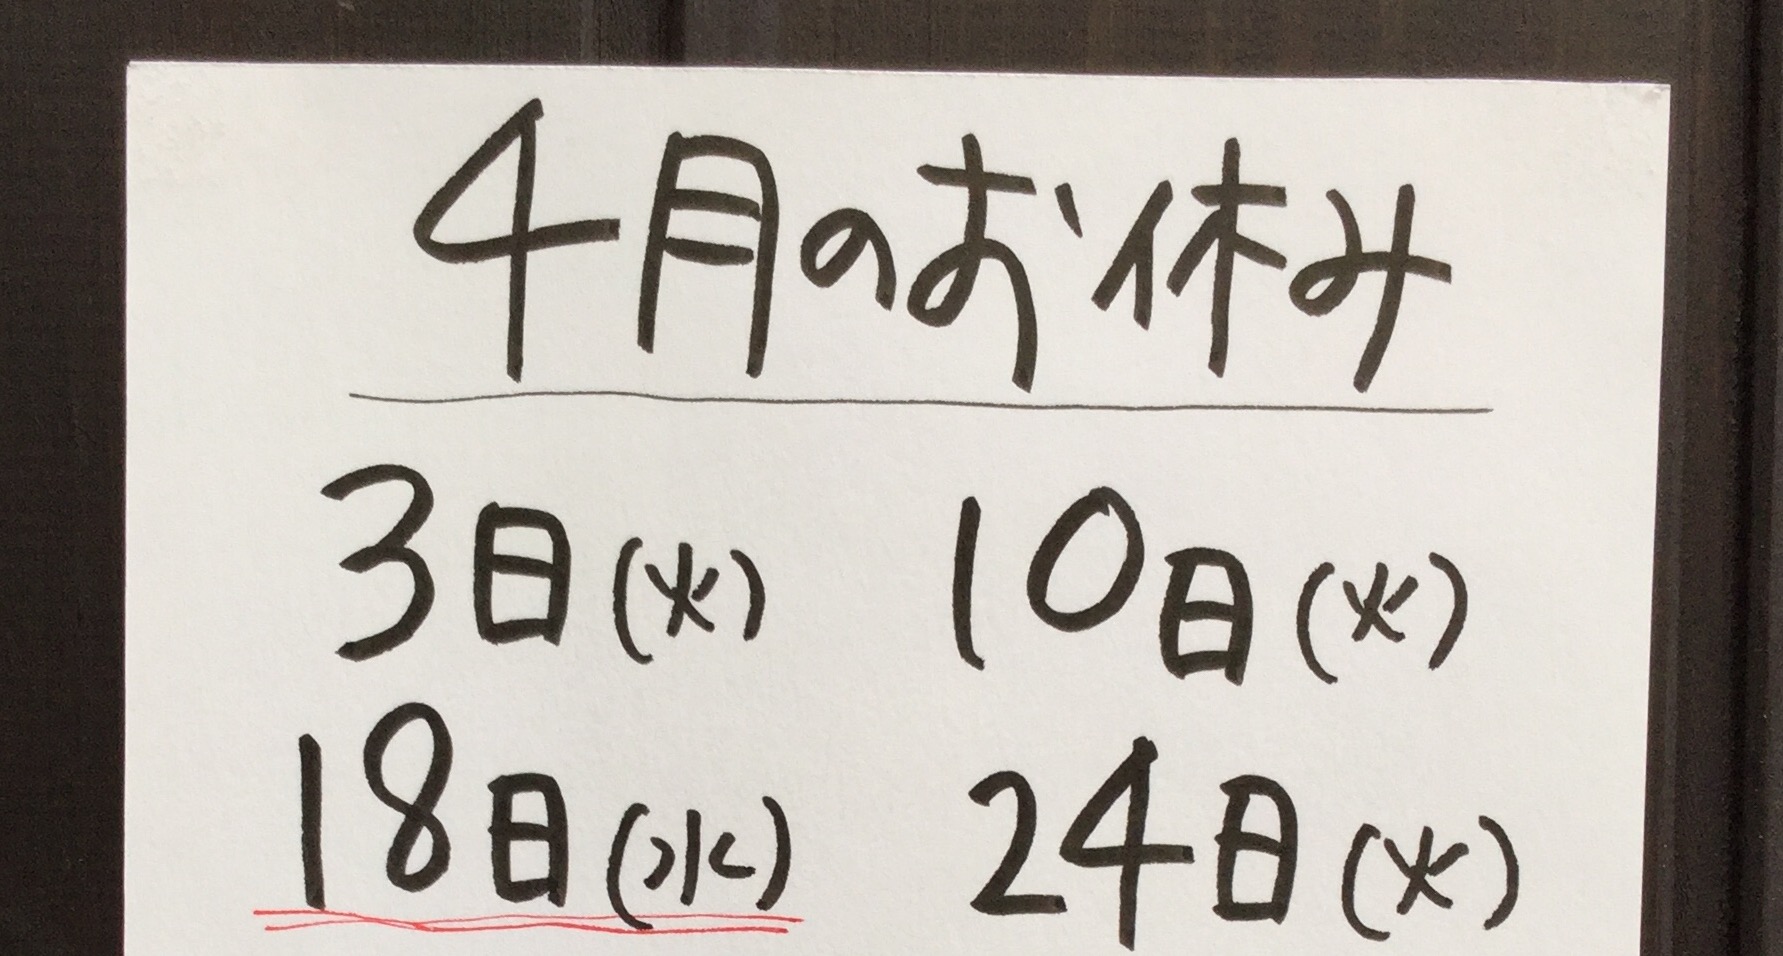 4月のお休み
3日(火) 10日(火)
18日(水) 24日(火)